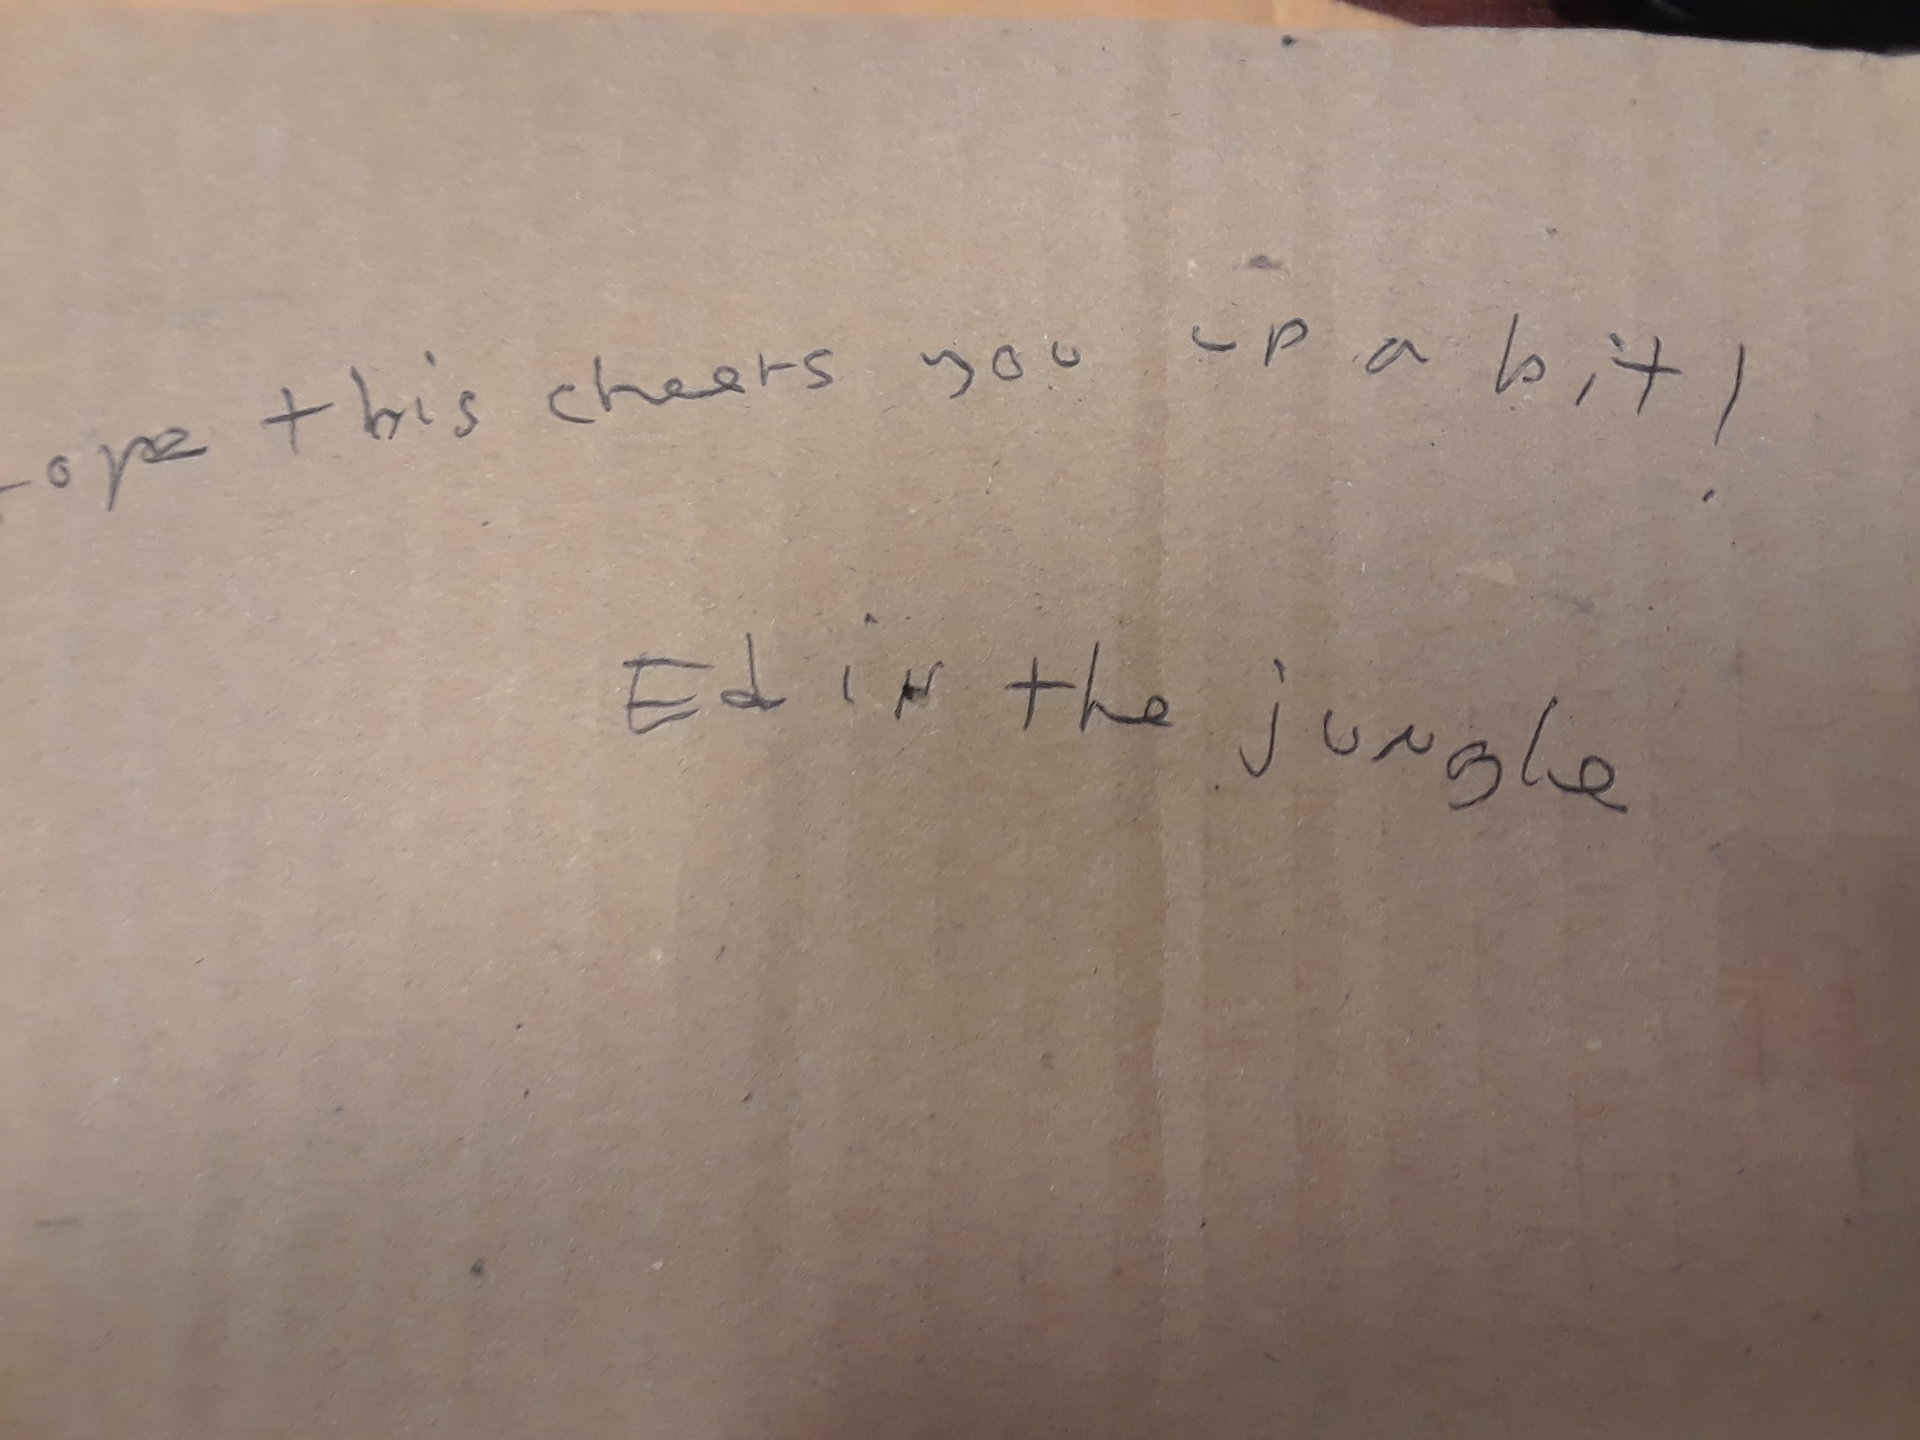 Hope this cheers you up a bit!
Ed in the jungle